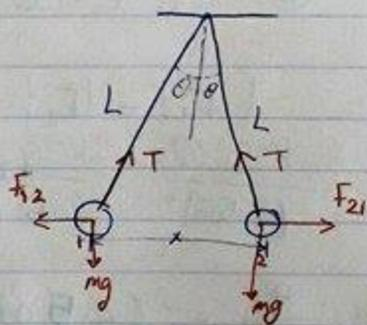 θ θ
L L
T T
F12 F21
1 x 2
mg mg